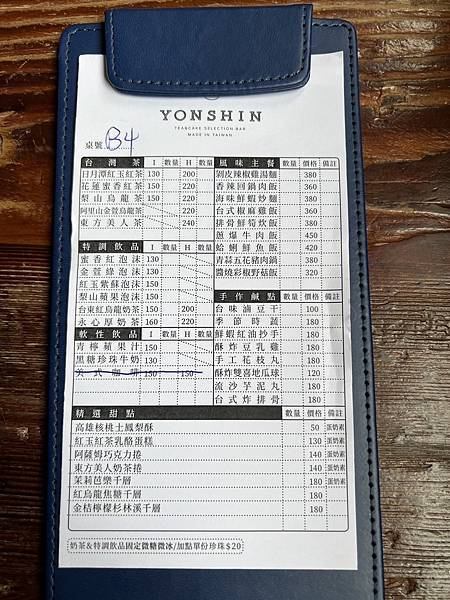 YONSHIN
TEA&CAKE SELECTION BAR
MADE IN TAIWAN
桌號 B4
台灣茶 I 數量 H 數量
日月潭紅玉紅茶 130 200
花蓮蜜香紅茶 150 220
梨山烏龍茶 150 220
阿里山金萱烏龍茶 220
東方美人茶 240
特調飲品 I 數量 H 數量
蜜香紅泡沫 130
金萱綠泡沫 130
紅玉紫蘇泡沫 150
梨山蘋果泡沫 150
台東紅烏龍奶茶 150 200
永心厚奶茶 160 220
軟性飲品 I 數量 H 數量
青檸蘋果汁 150
黑糖珍珠牛奶 130
美式咖啡 150 150
風味主餐 數量 價格 備註
剝皮辣椒雞湯麵 380
香辣回鍋肉飯 360
海味鮮蝦炒麵 380
台式椒麻雞飯 360
排骨鮮筍炊飯 380
蔥爆牛肉飯 450
蛤蜊鮮魚飯 420
青蒜五花豬肉鍋 380
醬燒彩椒野菇飯 320
手作鹹點 數量 價格 備註
台味滷豆干 100
季節時蔬 180
鮮蝦紅油抄手 180
酥炸豆乳雞 180
手工花枝丸 180
酥炸雙喜地瓜球 120
流沙芋泥丸 180
台式炸排骨 180
精選甜點 數量 價格 備註
高雄核桃土鳳梨酥 50 蛋奶素
紅玉紅茶乳酪蛋糕 130 蛋奶素
阿薩姆巧克力捲 140 蛋奶素
東方美人奶茶捲 140 蛋奶素
茉莉芭樂千層 180 蛋奶素
紅烏龍焦糖千層 180
金桔檸檬杉林溪千層 180
奶茶&特調飲品固定微糖微冰/加點單份珍珠$20